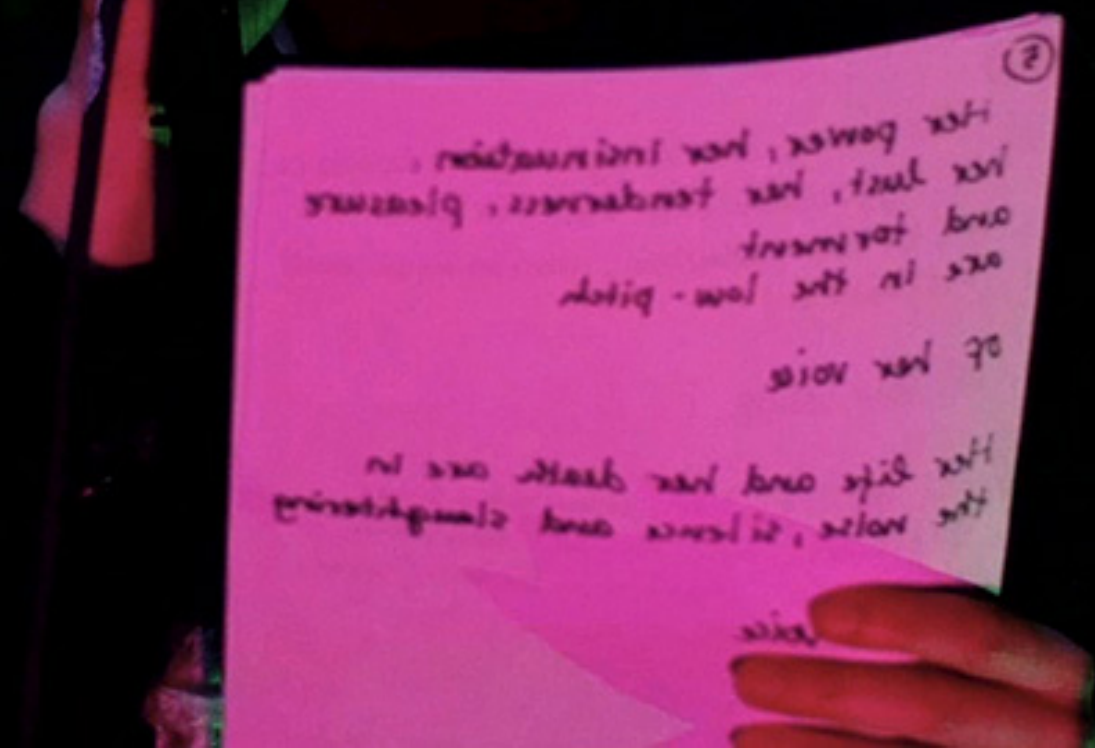 5
Her power, her insinuation,
her lust, her tenderness, pleasure
and torment
are in the low-pitch
of her voice
Her life and her death are in
the noise, silence and slaughtering